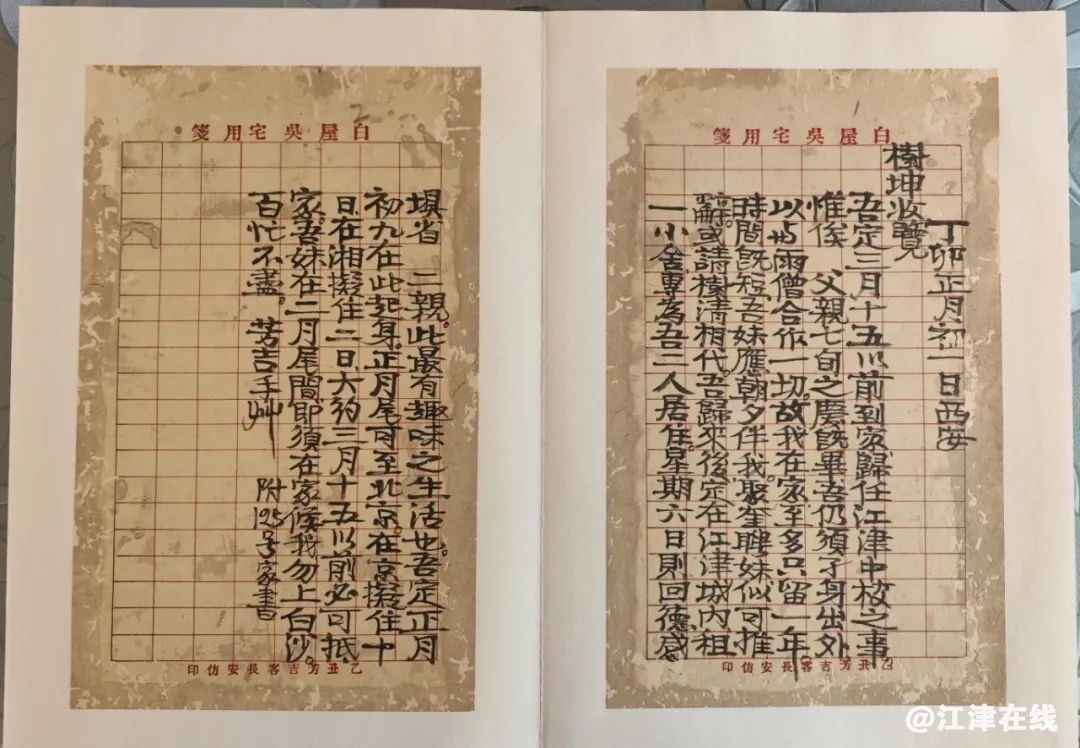 1
白屋吳宅用箋
丁卯正月初一日西安
樹坤 覽
吾定三月十五以前到家歸任江津中校之事
惟俟 父親七旬之慶旣畢吾仍須孑身出外
以與雨僧合作一切。故我在家至多只留一年
時間旣短吾妹應朝夕伴我。聚奎聘妹似可推
辭。或請 清相代。吾歸來後定在江津城內租
一小舍專為吾二人居住。星期六日則回德感
乙丑芳吉客長安仿印
2
白屋吳宅用箋
壩省 二親。此最有趣味之生活也。吾定正月
初九在此起身。正月尾可至北京。在京擬住十
日。在湘擬住二日。大約三月十五以前必可抵
家。吾妹在二月尾間。即須在家候我勿上白沙。
百忙不盡。 芳吉手艸 附125号家書
乙丑芳吉客長安仿印
@江津在线